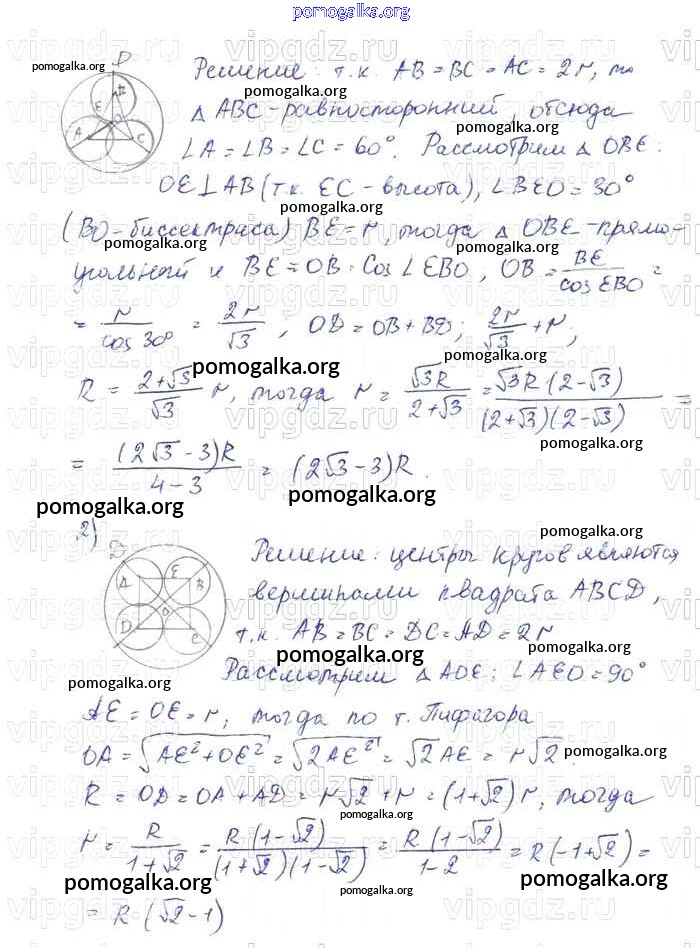 pomogalka.org
Решение: т.к. AB = BC = AC = 2r, то
△ ABC - равносторонний, отсюда
∠A = ∠B = ∠C = 60°. Рассмотрим △ OBE:
OE ⊥ AB (т.к. EC - высота), ∠BEO = 30°
(BO - биссектриса) BE = r, тогда △ OBE - прямо-
угольный и BE = OB · Cos ∠EBO, OB = BE / cos EBO =
= r / cos 30° = 2r / √3, OD = OB + BD; 2r / √3 + r;
R = (2+√3) / √3 r, тогда r = √3R / (2+√3) = √3R (2-√3) / (2+√3)(2-√3) =
= (2√3 - 3)R / (4-3) = (2√3 - 3)R.
2)
Решение: центры кругов являются
вершинами квадрата ABCD,
т.к. AB = BC = DC = AD = 2r
Рассмотрим △ AOE: ∠AEO = 90°
AE = OE = r, тогда по т. Пифагора
OA = √(AE² + OE²) = √(2AE²) = √2 AE = r√2.
R = OD = OA + AD = r√2 + r = (1+√2) r, тогда
r = R / (1+√2) = R (1-√2) / (1+√2)(1-√2) = R (1-√2) / (1-2) = R (-1+√2) =
= R (√2 - 1)